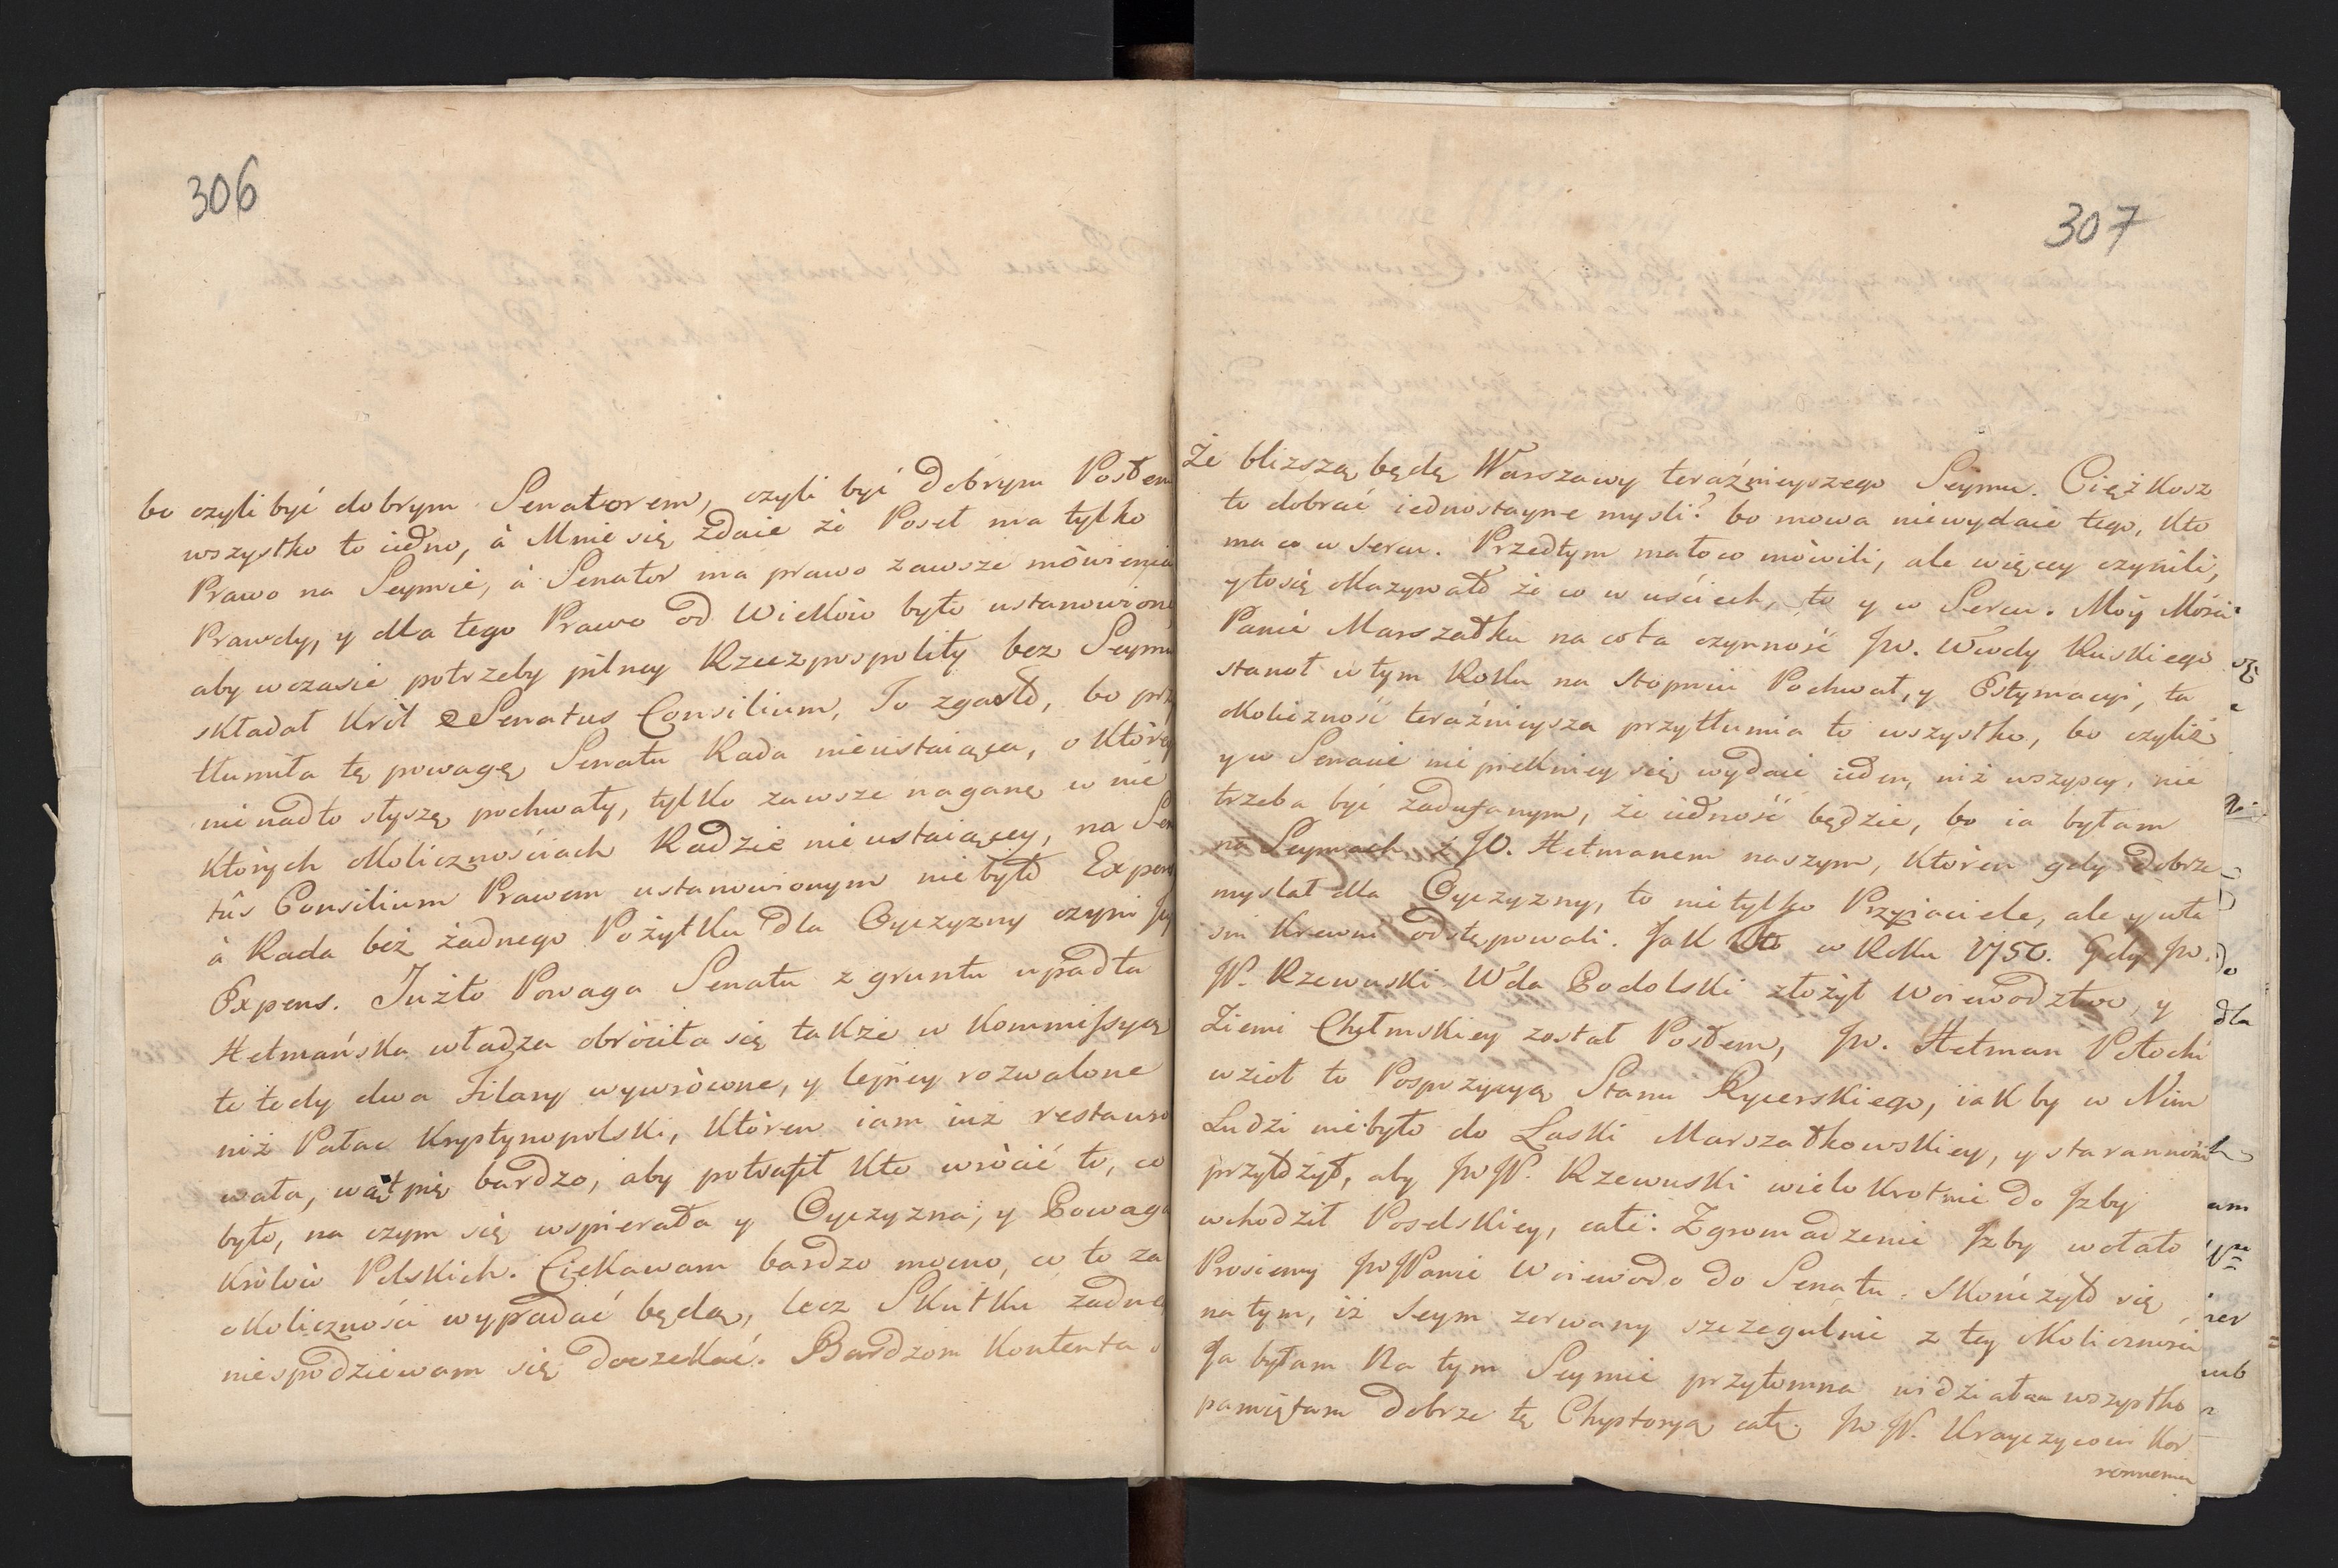 306
bo czyli być dobrym Senatorem, czyli być dobrym Posłem
wszystko to iedno, à Mnie się zdaie że Poseł ma tylko
Prawo na Seymie, à Senator ma prawo zawsze mówienia
Prawdy, y dla tego Prawo od Wieków było ustanowione
aby wczasie potrzeby pilney Rzeczpospolity bez Seymu
składał Król Senatus Consilium, To zgasło, bo prz
tłumiła tę powagę Senatu Rada nieustaiąca, o którey
nie nadto słyszę pochwały, tylko zawsze naganę w nie
których okolicznościach Radzie nieustaiącey, na Sen
tûs Consilium Prawem ustanowionym niebyło Expens
à Rada bez żadnego Pożytku dla Oyczyzny czyni
Expens. Jużto Powaga Senatu z gruntu upadła
Hetmańska władza obróciła się także w Kommissyą
te tedy dwa Filary wywrócone, y lepiey rozwalone
niż Pałac Krystynopolski, któren iam iuż restauro
wała, wątpię bardzo, aby potrafił kto wrócić to, co
było, na czym się wspierała y Oyczyzna, y Powaga
Królów Polskich. Ciekawam bardzo mocno, co to za
okoliczności wypadać będą, lecz Skutku żadne
niespodziewam się doczekać. Bardzom kontenta
307
Że bliższą będę Warszawy teraźnieyszego Seymu. Ciężkosz
to dobrać iednostayne mysli? bo mowa niewydaie tego, kto
ma co w sercu. Przedtym mało co mówili, ale więcey czynili,
y tosię okazywało że co w uściech, to y w Sercu. Móy Mości
Panie Marszałku na co ta czynność Jw. Wwody Ruskiego
stanoł w tym Roku na Stopniu Pochwał, y Estymacyi, ta
okoliczność teraźnieysza przytłumia to wszystko, bo czyliż
y w Senacie nie piekniey się wydaie ieden, niż wszyscy, nie
trzeba być zadufanym, że iedność będzie, bo ia byłam
na Seymach z JO. Hetmanem naszym, któren gdy dobrze
myslał dla Oyczyzny, to nietylko Przyiaciele, ale y wła
sni Krewni odstępowali. Jak to w Roku 1750. Gdy Jw.
JP. Rzewuski Wda Podolski złożył Woiewodztwo, y
Ziemi Chełmskiey został Posłem, Jw. Hetman Potocki
wzioł to Pospozycyą Stanu Rycerskiego, iak by w Nim
Ludzi niebyło do Laski Marszałkowskiey, y starannośći
przyłożył, aby Jw JP. Rzewuski wielokrotnie do Jzby
wchodził Poselskiey, całe: Zgromadzenie Jzby wołało
Prosiemy JwPanie Woiewodo do Senatu. Skończyło się
na tym, iż Seym zerwany szczegulnie z tey okoliczności
Ja byłam Na tym Seymie przytomna widziałam wszystko
pamiętam dobrze tę Chystoryą całą. Jw JP. Krayczycowi Kor
ronnemu